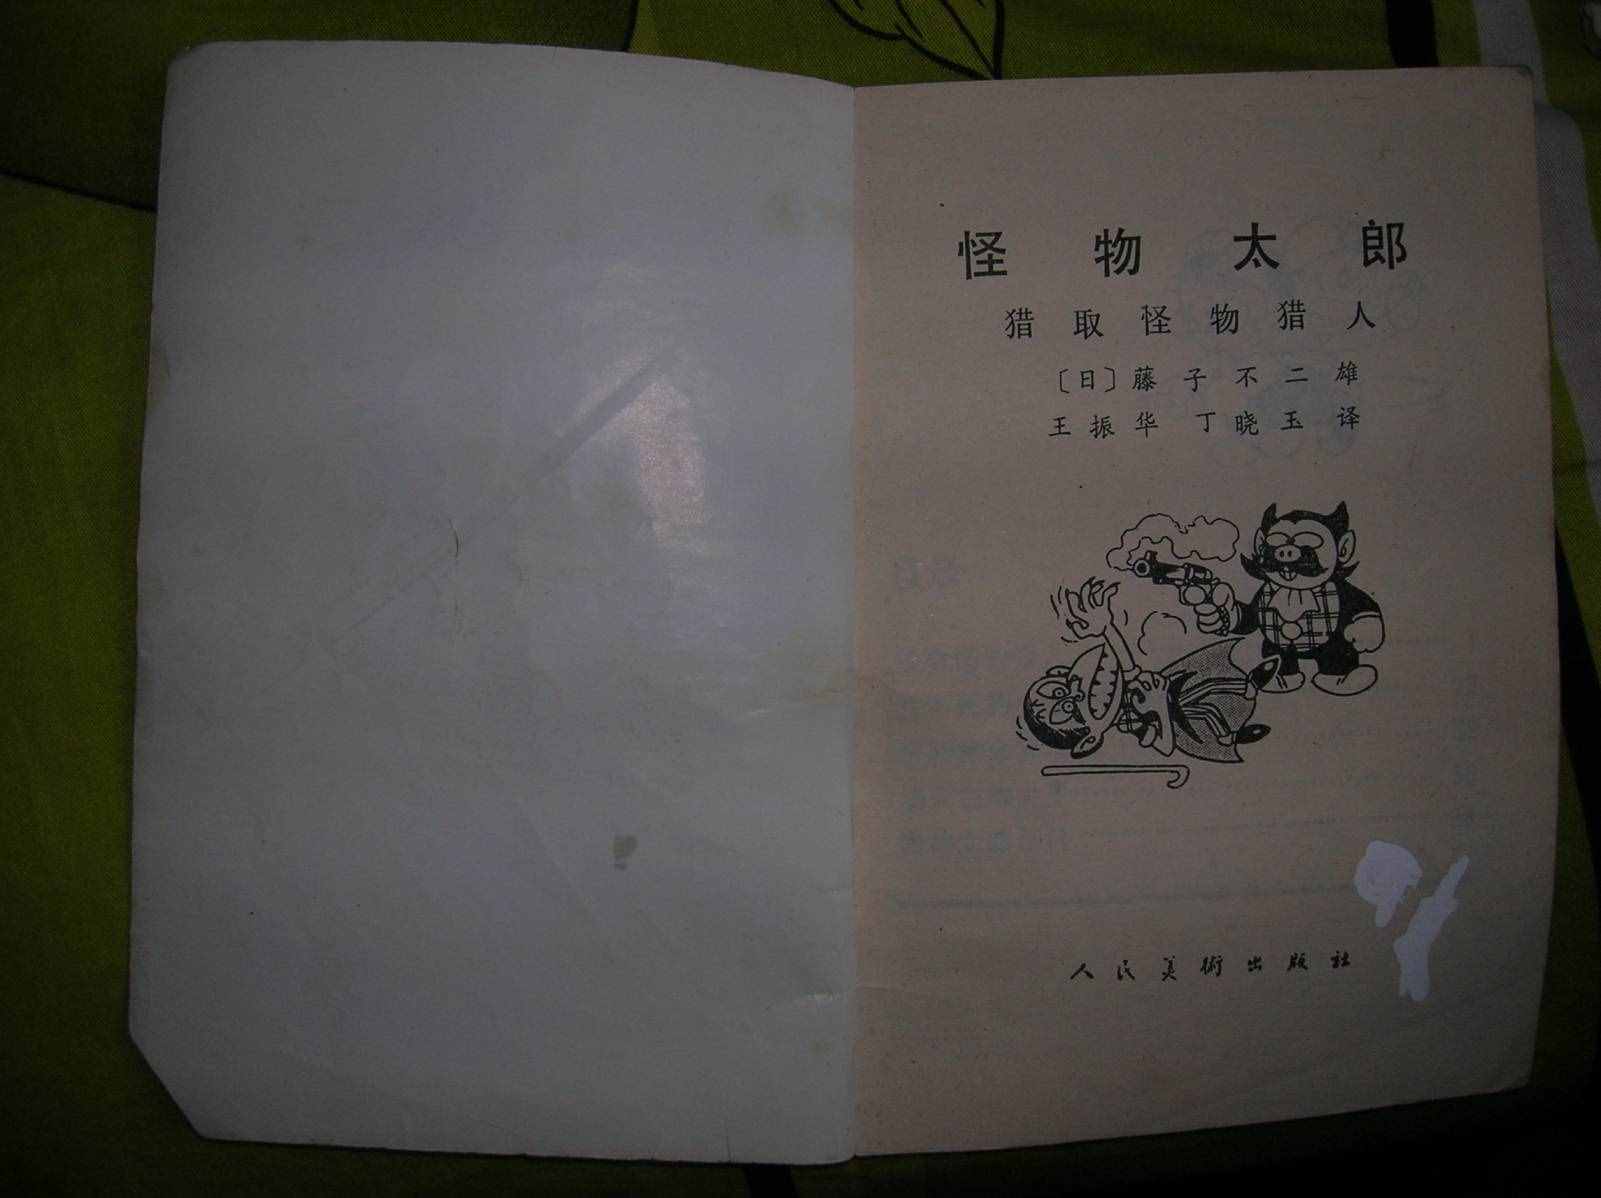 怪物太郎
猎取怪物猎人
〔日〕藤子不二雄
王振华 丁晓玉 译
人民美術出版社